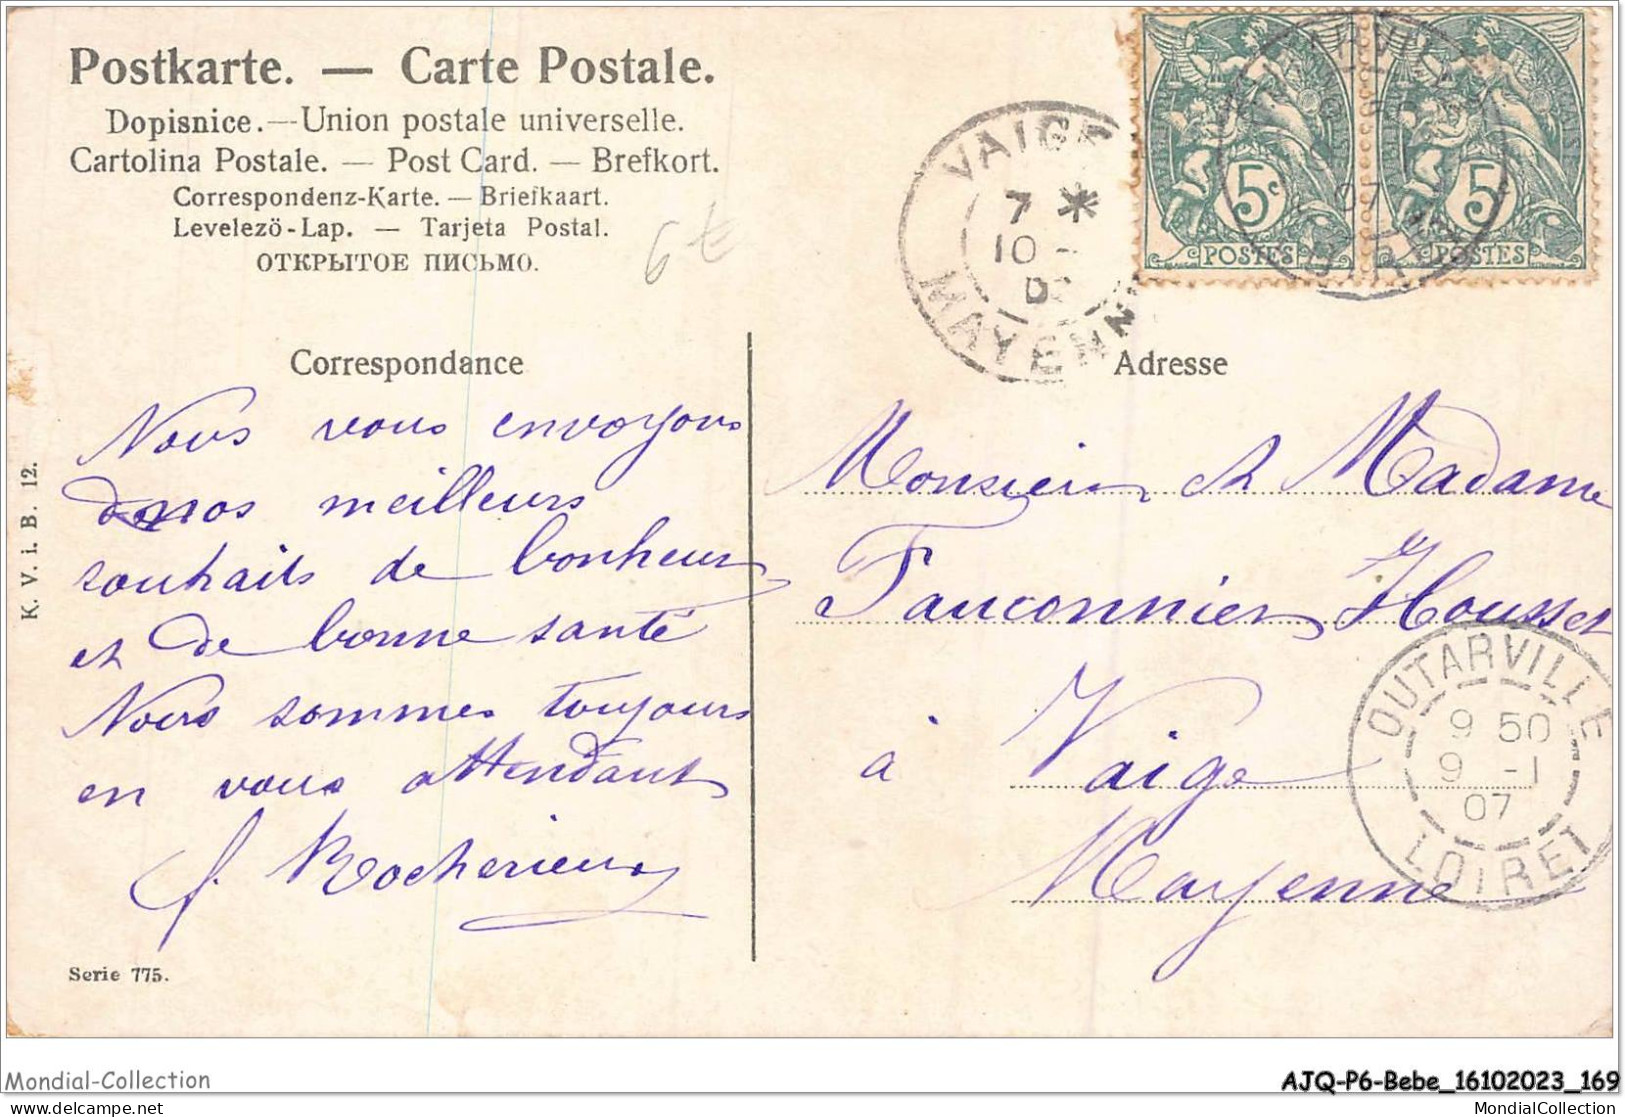 Postkarte. — Carte Postale.
Dopisnice. — Union postale universelle.
Cartolina Postale. — Post Card. — Brefkort.
Correspondenz-Karte. — Briefkaart.
Levelezö-Lap. — Tarjeta Postal.
ОТКРЫТОЕ ПИСЬМО.
6€
VAIGE
7 *
10 -
MAYENNE
5c
POSTES
5c
POSTES
07
Correspondance
Nous vous envoyons
nos meilleurs
souhaits de bonheur
et de bonne santé
Nous sommes toujours
en vous attendant
Rocherieux
K. V. i. B. 12.
Serie 775.
Adresse
Monsieur et Madame
Fauconnier Housset
à Vaige
Mayenne
OUTARVILLE
9 50
9 -1
07
LOIRET
Mondial-Collection
AJQ-P6-Bebe_16102023_169
www.delcampe.net
MondialCollection